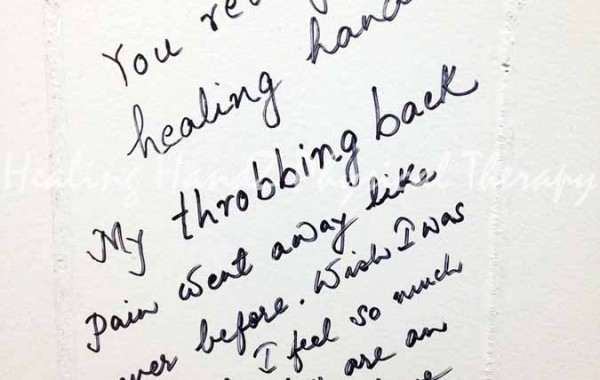 You
healing
My throbbing back
pain went away like
before. Wish I was
I feel so much
are an
Healing Hands Physical Therapy